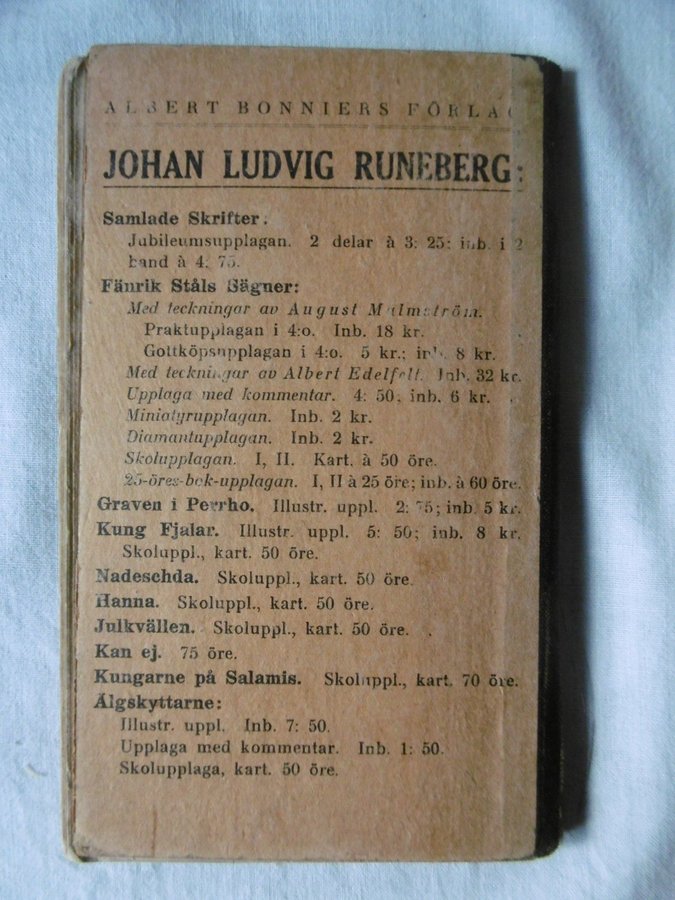 ALBERT BONNIERS FÖRLAG
JOHAN LUDVIG RUNEBERG:
Samlade Skrifter.
Jubileumsupplagan. 2 delar à 3: 25; inb. i 2
band à 4: 75.
Fänrik Ståls Sägner:
Med teckningar av August Malmström.
Praktupplagan i 4:o. Inb. 18 kr.
Godtköpsupplagan i 4:o. 5 kr.; inb. 8 kr.
Med teckningar av Albert Edelfelt. Inb. 32 kr.
Upplaga med kommentar. 4: 50, inb. 6 kr.
Miniatyrupplagan. Inb. 2 kr.
Diamantupplagan. Inb. 2 kr.
Skolupplagan. I, II. Kart. à 50 öre.
25-öres-bok-upplagan. I, II à 25 öre; inb. à 60 öre.
Graven i Perrho. Illustr. uppl. 2: 75; inb. 5 kr.
Kung Fjalar. Illustr. uppl. 5: 50; inb. 8 kr.
Skoluppl., kart. 50 öre.
Nadeschda. Skoluppl., kart. 50 öre.
Hanna. Skoluppl., kart. 50 öre.
Julkvällen. Skoluppl., kart. 50 öre.
Kan ej. 75 öre.
Kungarne på Salamis. Skoluppl., kart. 70 öre.
Älgskyttarne:
Illustr. uppl. Inb. 7: 50.
Upplaga med kommentar. Inb. 1: 50.
Skolupplaga, kart. 50 öre.